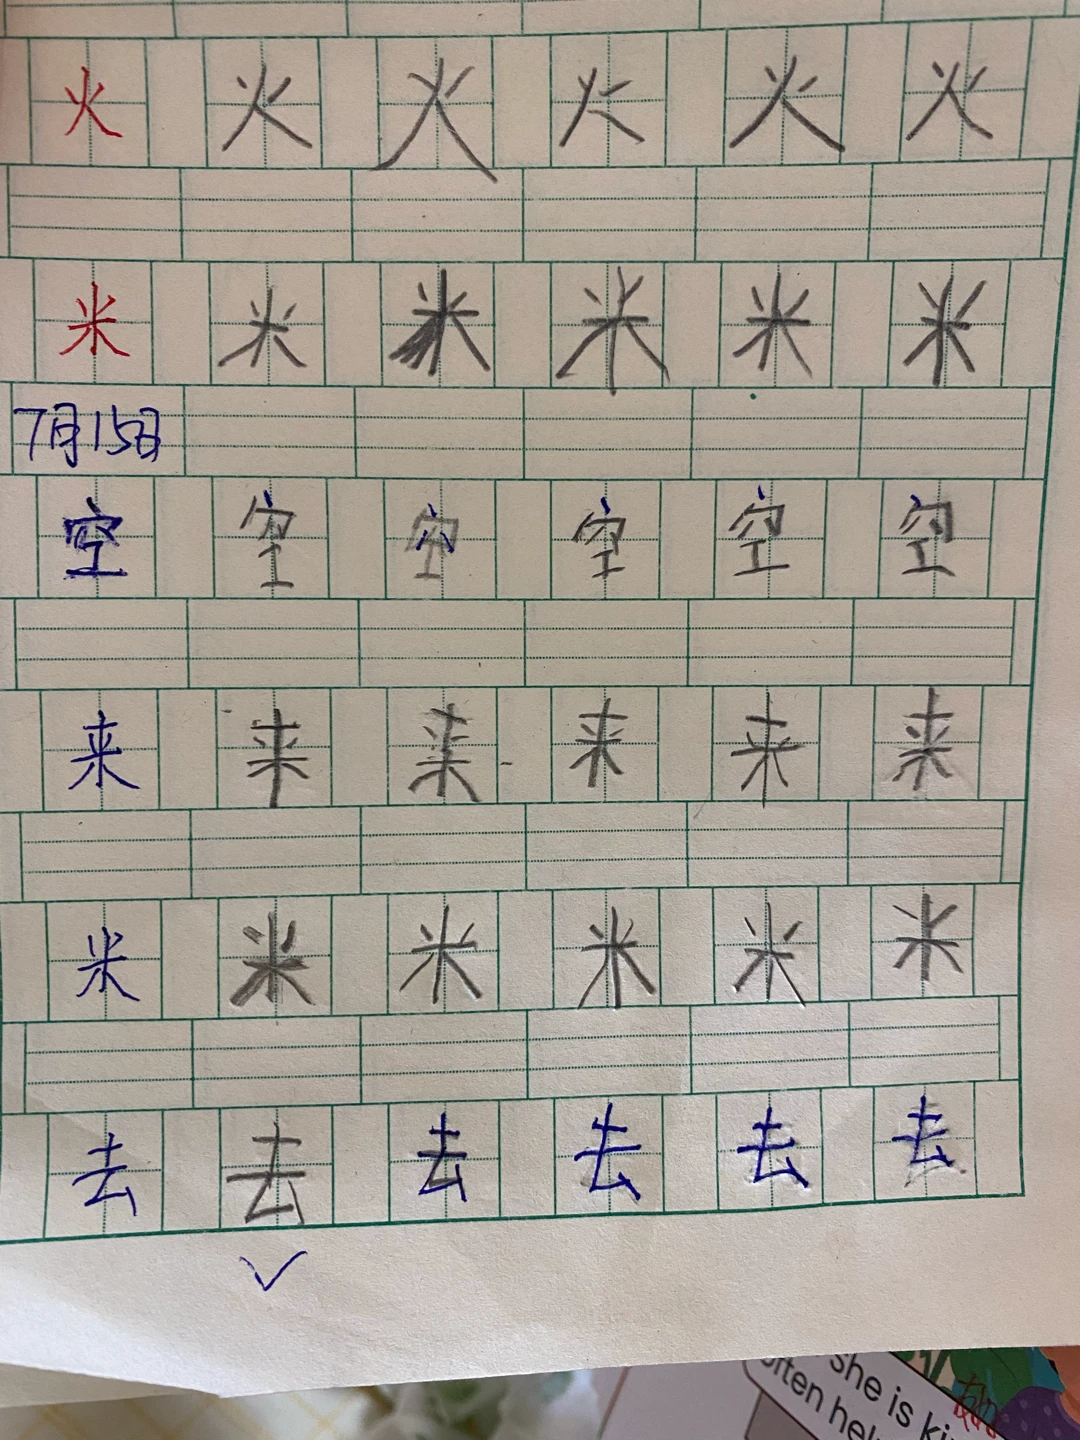 火 火 火 火 火 火
米 米 米 米 米 米
7月15日
空 空 空 空 空 空
来 来 来 来 来 来
米 米 米 米 米 米
去 去 去 去 去 去
She is ki
often hel